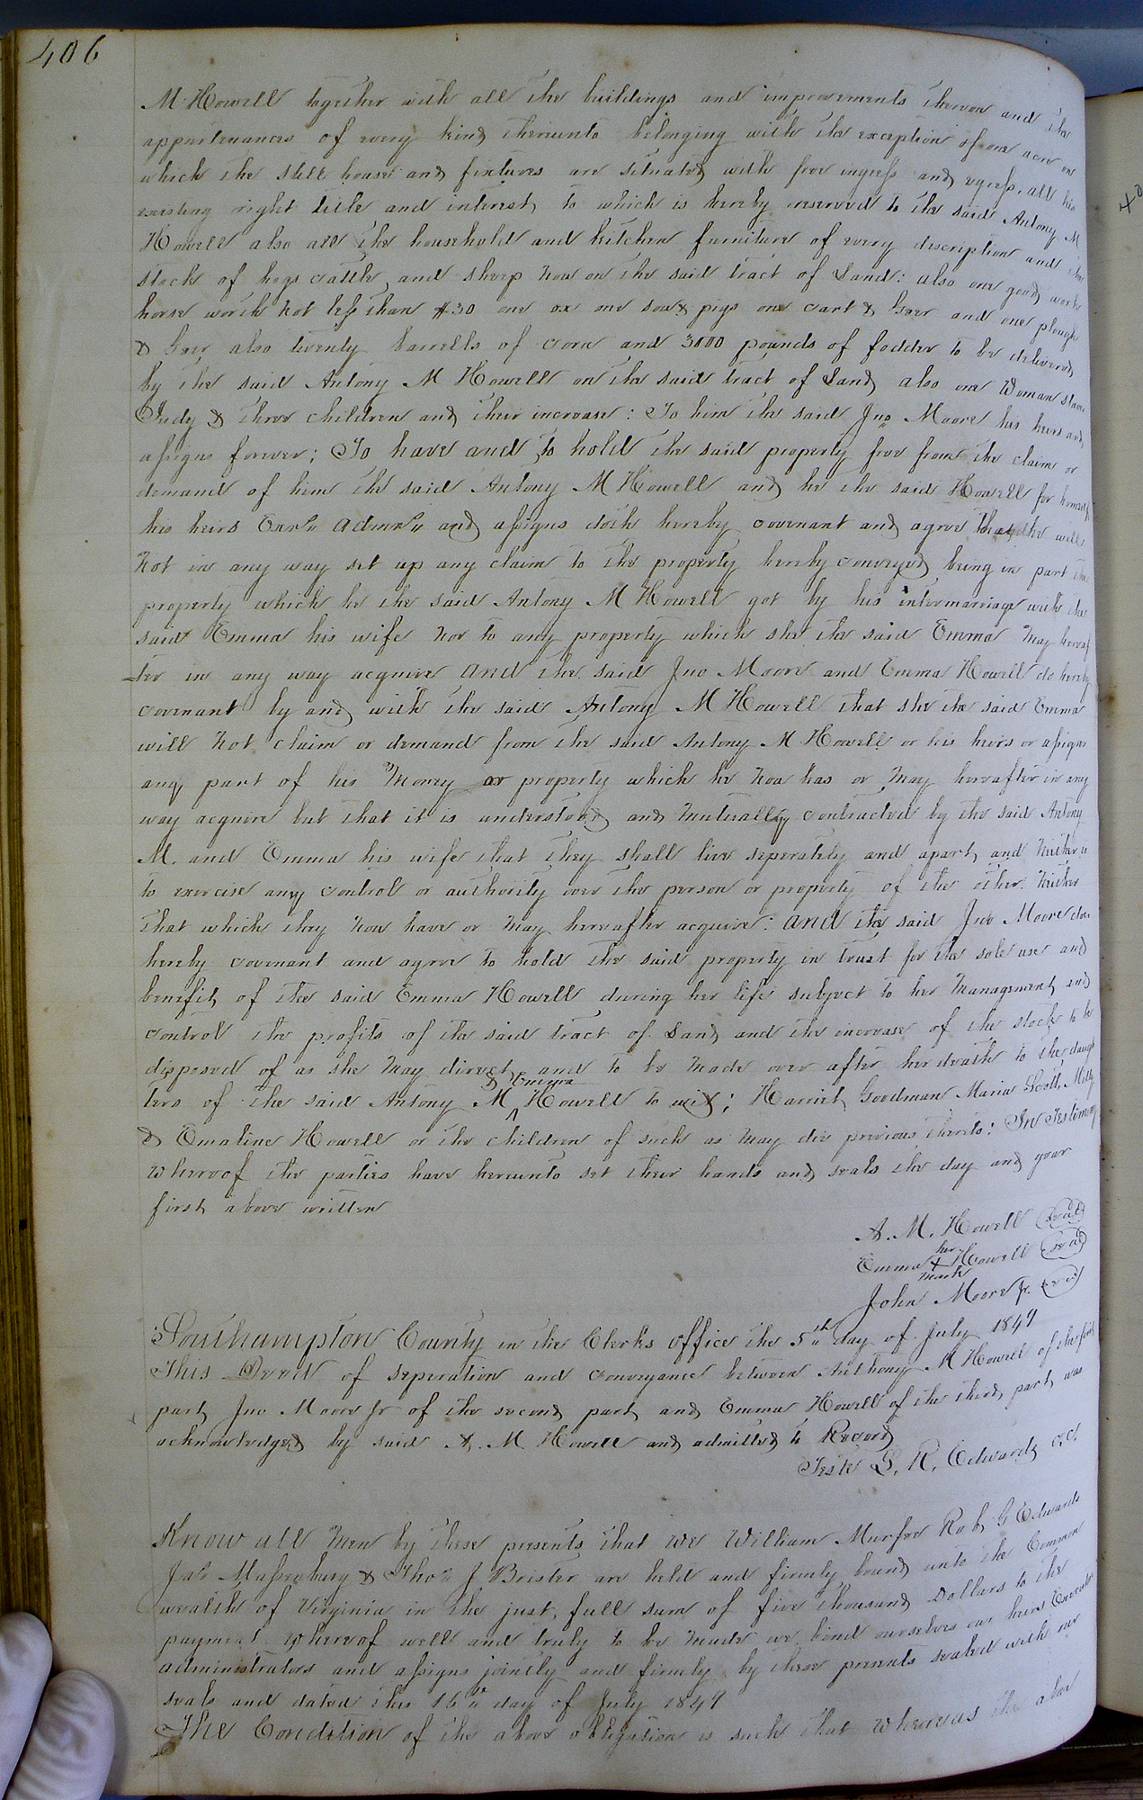 406
M Howell together with all the buildings and improvements thereon and the
appurtenances of every kind thereunto belonging with the exception of one acre on
which the still house and fixtures are situated with free ingress and egress, all his
existing right title and interest to which is hereby reserved to the said Antony M
Howell also all the household and kitchen furniture of every description and the
stock of hogs cattle and sheep now on the said tract of Land: also one good work
horse worth not less than $30 one ox one sow & pigs one cart & Geer and one plough
& Geer also twenty barrells of corn and 3000 pounds of fodder to be delivered
by the said Antony M Howell on the said tract of Land, also one Woman slave
Judy & three children and their increase: To him the said Jno Moore his heirs and
assigns forever; To have and to hold the said property free from the claim or
demand of him the said Antony M Howell and he the said Howell for himself
his heirs Exrs Admrs and assigns doth hereby covenant and agree that he will
not in any way set up any claim to the property hereby conveyed, being in part the
property which he the said Antony M Howell got by his intermarriage with the
said Emma his wife nor to any property which she the said Emma may hereaf
-ter in any way acquire and the said Jno Moore and Emma Howell do hereby
covenant by and with the said Antony M Howell that she the said Emma
will not claim or demand from the said Antony M Howell or his heirs or assigns
any part of his money or property which he now has or may hereafter in any
way acquire but that it is understood and mutually contracted by the said Antony
M. and Emma his wife that they shall live seperately and apart, and neither is
to exercise any control or authority over the person or property of the other neither
that which they now have or may hereafter acquire: and the said Jno Moore doth
hereby covenant and agree to hold the said property in trust for the sole use and
benefit of the said Emma Howell during her life subject to her management and
control the profits of the said tract of Land and the increase of the stock to be
disposed of as she may direct and to be made over after her death to the daugh
& Emma
ters of the said Antony M Howell to wit; Harriet Goodman Maria Scott, Milly
& Emaline Howell or the children of such as may die previous thereto: In Testimony
whereof the parties have hereunto set their hands and seals the day and year
first above written
A. M. Howell (seal)
her
Emma + Howell (seal)
mark
John Moore Jr. (seal)
Southampton County in the Clerks office the 5th day of July 1849
This Deed of seperation and conveyance between Anthony M Howell of the first
part, Jno Moore Jr of the second part and Emma Howell of the third part was
acknowledged by said A. M. Howell and admitted to Record
Teste L. R. Edwards c.c.
Know all Men by these presents that We William Murfee Rob G Edwards
Jas Massenburg & Thos J Brister are held and firmly bound unto the Common
wealth of Virginia in the just, full sum of five thousand Dollars to the
payment whereof well and truly to be made we bind ourselves our heirs Executors
administrators and assigns jointly and firmly by these presents sealed with our
seals and dated this 16th day of July 1849
The Condition of the above obligation is such that whereas the above